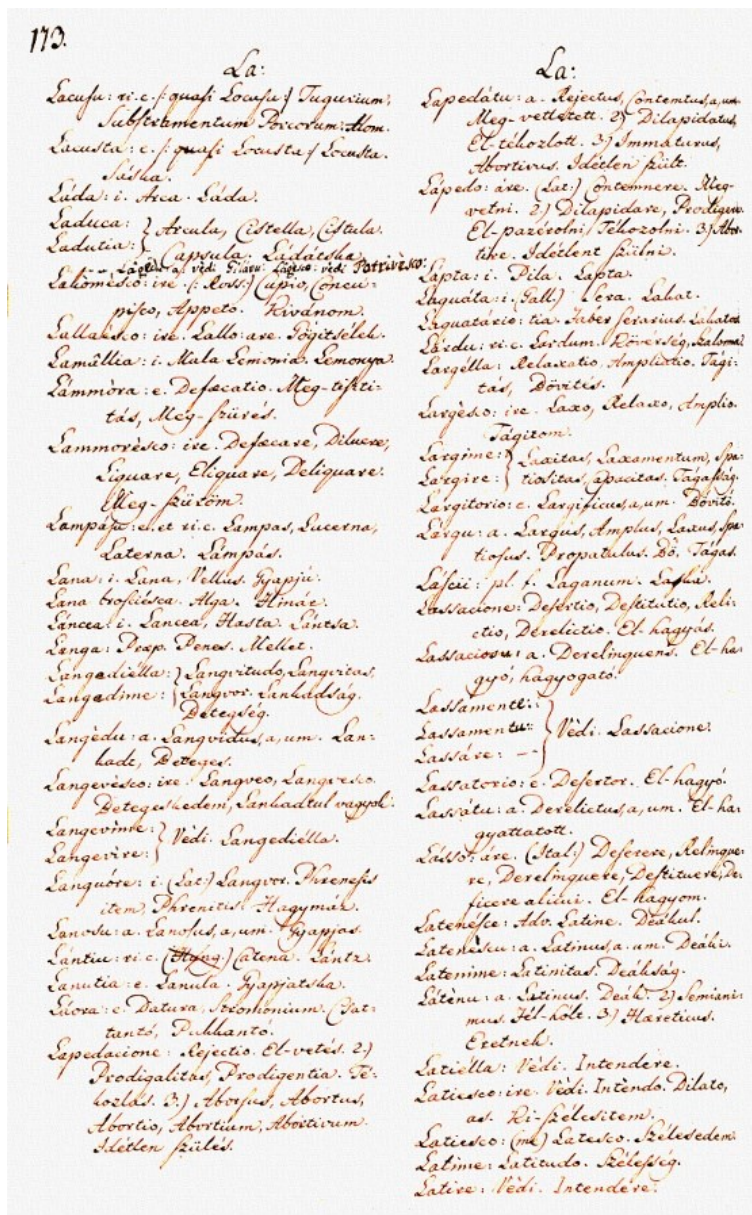 173.
La:
Lacusu: ri. c. /: quasi Locusu :/ Tugurium,
Substramentum Porcorum: Alom.
Lacusta: e. /: quasi Locusta :/ Locusta.
Sáska.
Ladá: i. Arca. Láda.
Laduca: } Arcula, Cistella, Cistula.
Ladutia: } Capsula. Ládátska.
Lákomèsco: ire. (: Ross:) Cupio, Concu-
pisco, Appeto. Kivánom.
Lallaèsco: ire. Lallo: are. Gőgitsélek.
Lamâllia: i. Mala Lemonia. Lemonya.
Lámmòra: e. Defæcatio. Meg-tiszti-
tás, Meg-szürés.
Lammorèsco: ire. Defæcare, Diluere,
Liquare, Eliquare, Deliquare.
Meg-szüröm.
Lampásu: e. et ri. c. Lampas, Lucerna,
Laterna. Lámpás.
Lana: i. Lana, Vellus. Gyapjú.
Lana brosciésca. Alga. Hinár.
Láncea: i. Lancea, Hasta. Lántsa.
Langa: Præp. Penes. Mellet.
Langediélla: } Langvitudo, Langvitas,
Langedime: } Langvor. Lankadság.
Betegség.
Langèdu: a. Langvidus, a, um. Lan-
kadt, Beteges.
Langevèsco: ire. Langveo, Langvesco.
Betegeskedem, Lankadtul vagyok.
Langevime: } Vèdi. Langediélla.
Langevire: }
Languóre: i. (Lat:) Langvor. Phrenesis
item, Phrenitis. Hagymáz.
Lanosu: a. Lanosus, a, um. Gyapjas.
Lántiu: ri. c. (Hung.) Catena. Lántz.
Lanutia: e. Lanula. Gyapjatska.
Láora: e. Datura, Stromonium. Csat-
tantó, Pukkantó.
Lapedacione: Rejectio. El-vetés. 2.)
Prodigalitas, Prodigentia. Té-
kozlás. 3.) Aborsus, Abortus,
Abortio, Abortium, Abortivum.
Idétlen szülés.
La:
Lapedátu: a. Rejectus, Contemtus, a, um.
Meg-vettetett. 2.) Dilapidatus,
El-tékozlott. 3.) Immaturus,
Abortivus. Idétlen szült.
Lápedo: áre. (Lat:) Contemnere. Meg-
vetni. 2.) Dilapidare, Prodigere.
El-pazérolni, Tékozolni. 3.) Abor-
tire. Idétlent szülni.
Lapta: i. Pila. Lapta.
Laquáta: i. (Gall.) Sera. Lakat.
Laquatário: tia. Faber Serarius. Lakatos.
Lárdu: ri. c. Lardum. Kövérség, Szalonna.
Largélla: Relaxatio, Ampliatio. Tági-
tás, Bövités.
Largèsco: ire. Laxo, Relaxo, Amplio.
Tágitom.
Largime: } Laxitas, Laxamentum, Spa-
Largire: } tiositas, Capacitas. Tágasság.
Largitorio: e. Largificus, a, um. Bövitő.
Lárgu: a. Largus, Amplus, Laxus, Spa-
tiosus. Propatulus. Bő. Tágas.
Láscii: pl. f. Laganum. Laska.
Lassacione: Desertio, Destitutio, Reli-
ctio, Derelictio. El-hagyás.
Lassaciosu: a. Derelinquens. El-ha-
gyó, hagyogató.
Lassamente: }
Lassamentu: } Vèdi. Lassacione.
Lassáre: -- }
Lassatorio: e. Desertor. El-hagyó.
Lassátu: a. Derelictus, a, um. El-ha-
gyattatott.
Lásso: áre. (Ital:) Deserere, Relinque-
re, Derelinquere, Destituere, De-
ficere alicui. El-hagyom.
Latenésce: Adv. Latine. Deákul.
Latenèscu: a. Latinus, a. um. Deáki.
Latenime: Latinitas. Deákság.
Látènu: a. Latinus. Deák. 2.) Semiani-
mus. Fél-hólt. 3.) Hæreticus.
Eretnek.
Latiélla: Vèdi. Intendére.
Latiesco: ire. Vèdi. Intèndo. Dilato,
as. Ki-szélesitem.
Latiesco: (me) Latesco. Szélesedem.
Latime: Latitudo. Szélesség.
Latire: Vèdi. Intendére.